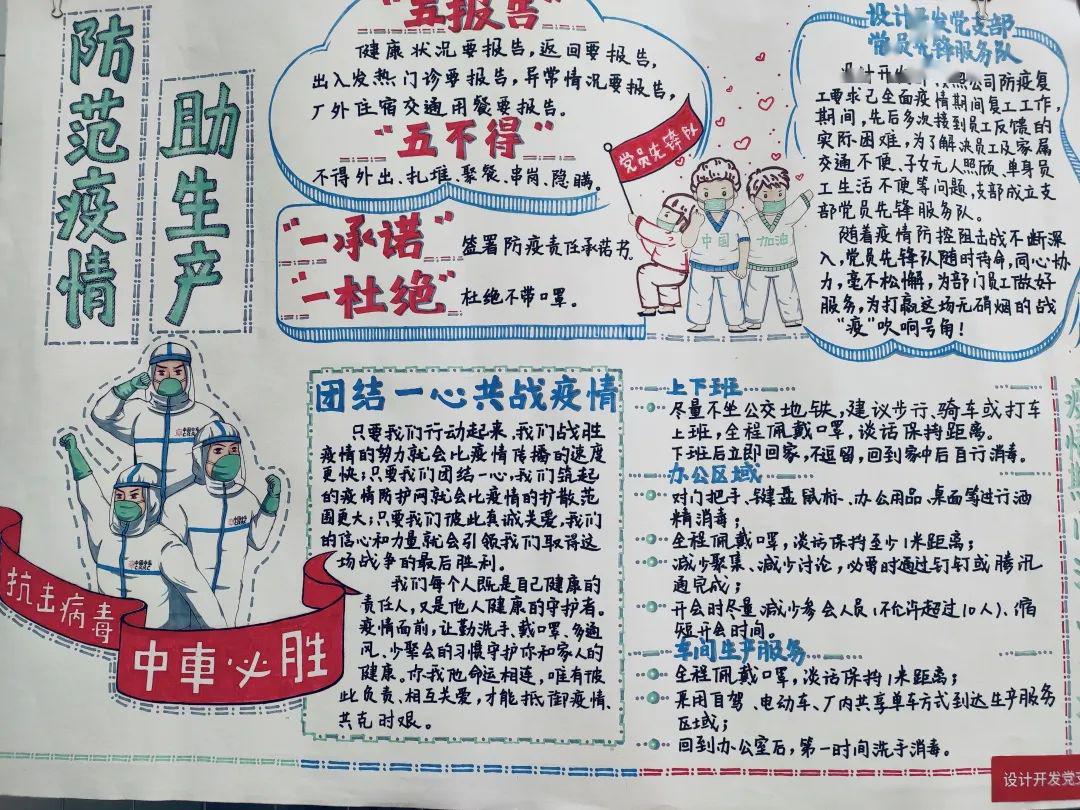 防范疫情
助生产
"五报告"
健康状况要报告,返回要报告,
出入发热门诊要报告,异常情况要报告,
厂外住宿交通用餐要报告。
"五不得"
不得外出、扎堆、聚餐、串岗、隐瞒。
"一承诺" 签署防疫责任承诺书。
"一杜绝" 杜绝不带口罩。
党员先锋队
中国
加油
设计开发党支部
党员先锋服务队
设计开发
公司防疫复
工要求已全面疫情期间复工工作,
期间,先后多次接到员工反馈的
实际困难,为了解决员工及家属
交通不便、子女无人照顾、单身员
工生活不便等问题,支部成立支
部党员先锋服务队。
随着疫情防控阻击战不断深
入,党员先锋队随时待命,同心协
力,毫不松懈,为部门员工做好
服务,为打赢这场无硝烟的战
"疫"吹响号角!
抗击病毒
中車必胜
团结一心共战疫情
只要我们行动起来,我们战胜
疫情的努力就会比疫情传播的速度
更快;只要我们团结一心,我们筑起
的疫情防护网就会比疫情的扩散范
围更大;只要我们彼此真诚关爱,我们
的信心和力量就会引领我们取得这
场战争的最后胜利。
我们每个人既是自己健康的
责任人,又是他人健康的守护者。
疫情面前,让勤洗手、戴口罩、多通
风、少聚会的习惯守护你和家人的
健康。你我他命运相连,唯有彼
此负责、相互关爱,才能抵御疫情、
共克时艰。
上下班
尽量不坐公交地铁,建议步行、骑车或打车
上班,全程佩戴口罩,谈话保持距离。
下班后立即回家,不逗留,回到家中后自行消毒。
办公区域
对门把手、键盘鼠标、办公用品、桌面等进行酒
精消毒;
全程佩戴口罩,谈话保持至少1米距离;
减少聚集、减少讨论,必要时通过钉钉或腾讯
通完成;
开会时尽量减少参会人员(不允许超过10人)、缩
短开会时间。
车间生产服务
全程佩戴口罩,谈话保持1米距离;
采用自驾、电动车、厂内共享单车方式到达生产服务
区域;
回到办公室后,第一时间洗手消毒。
设计开发党支